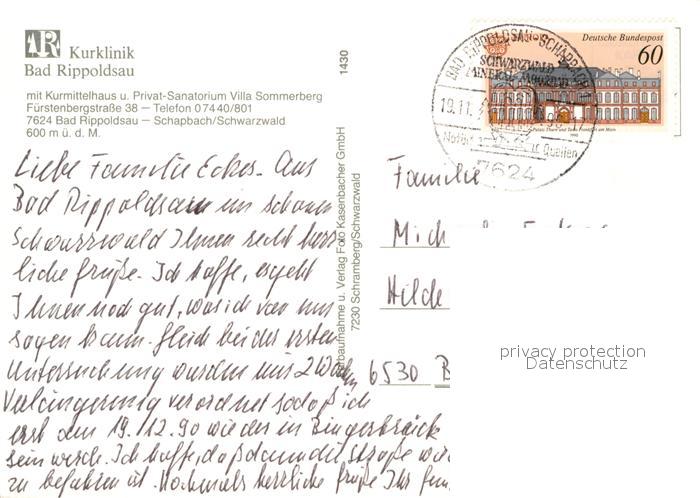 Kurklinik
Bad Rippoldsau
mit Kurmittelhaus u. Privat-Sanatorium Villa Sommerberg
Fürstenbergstraße 38 — Telefon 07440/801
7624 Bad Rippoldsau — Schapbach/Schwarzwald
600 m ü. d. M.
1430
Farbaufnahme u. Verlag Foto Kasenbacher GmbH
7230 Schramberg/Schwarzwald
Deutsche Bundespost
60
BAD RIPPOLDSAU-SCHAPBACH
SCHWARZWALD
19.11.
7624
Liebe Familie Eckes. Aus
Bad Rippoldsau im schönen
Schwarzwald Ihnen recht herz-
liche Grüße. Ich hoffe, es geht
Ihnen noch gut, was ich von mir
sagen kann. Gleich bei der ersten
Untersuchung wurden mir 2 Wochen
Verlängerung verordnet sodaß ich
erst am 19.12.90 wieder in Bingerbrück
sein werde. Ich hoffe, daß dann die Straße wie
zu befahren ist. Nochmals herzliche Grüße Ihr
Familie
Mich
Hilde
6530 B
privacy protection
Datenschutz